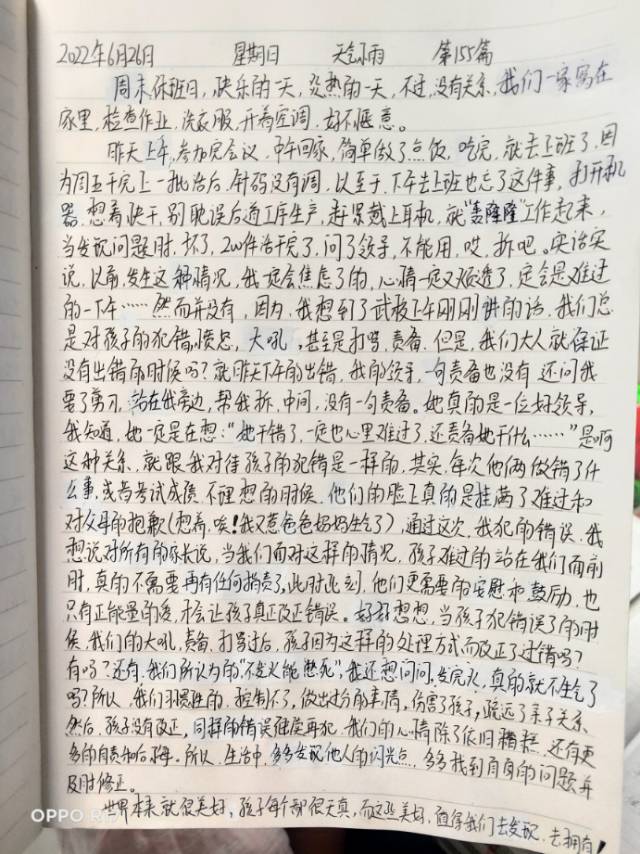 2022年6月26日 星期日 天气小雨 第155篇
周末休班日，快乐的一天，炎热的一天，不过，没有关系，我们一家窝在
家里，检查作业，洗衣服，开着空调，好不惬意。
昨天上午，参加完会议，中午回家，简单做了点饭，吃完，就去上班了，因
为周五干完上一批活后，针码没有调，以至于下午去上班也忘了这件事，打开机
器，想着快干，别耽误后道工序生产，赶紧戴上耳机，就“轰隆隆”工作起来，
当发现问题时，坏了，20件活干完了，问了领导，不能用，哎，拆吧。实话实
说，以前，发生这种情况，我一定会焦虑了的，心情一定又烦透了，定会是难过
的一下午……然而并没有，因为，我想到了武校上午刚刚讲的话，我们总
是对孩子的犯错，愤怒，大吼，甚至是打骂，责备，但是，我们大人就保证
没有出错的时候吗？就昨天下午的出错，我的领导，一句责备也没有，还问我
要了剪刀，站在我旁边，帮我拆，中间，没有一句责备。她真的是一位好领导，
我知道，她一定是在想：“她干错了，一定也心里难过了，还责备她干什么……”是啊
这种关系，就跟我对待孩子的犯错是一样的，其实，每次他俩做错了什
么事，或者考试成绩不理想的时候，他们的脸上真的是挂满了难过和
对父母的抱歉（想着，唉！我又惹爸爸妈妈生气了），通过这次，我犯的错误，我
想说对所有的家长说，当我们面对这样的情况，孩子难过的站在我们面前
时，真的不需要再有任何指责了，此时此刻，他们更需要的安慰和鼓励，也
只有正能量的爱，才会让孩子真正改正错误。好好想想，当孩子犯错误了的时
候，我们的大吼，责备，打骂过后，孩子因为这样的处理方式而改正了过错吗？
有吗？还有，我们所认为的“不发火能憋死”，我还想问问，发完火，真的就不生气了
吗？所以，我们习惯性的，控制不了，做出过分的事情，伤害了孩子，疏远了亲子关系，
然后，孩子没有改正，同样的错误继续再犯，我们的心情除了依旧糟糕，还有更
多的自责和后悔。所以，生活中，多多发现他人的闪光点，多多找到自身的问题并
及时修正。
世界本来就很美好，孩子每个都很天真，而这些美好，值得我们去发现，去拥有！
OPPO R